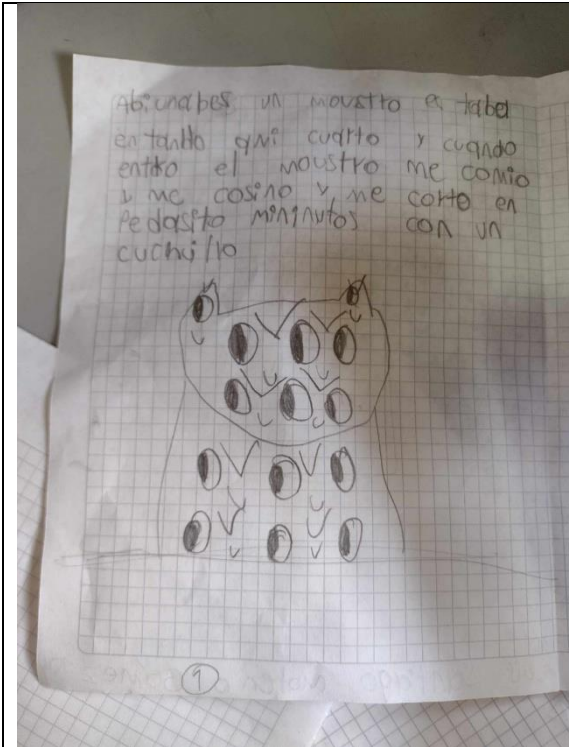 Abiunabes un moustro estaba
entanto ami cuarto y cuando
entro el moustro me comio
y me cosino y me corto en
Pedasito mininutos con un
cuchillo
1